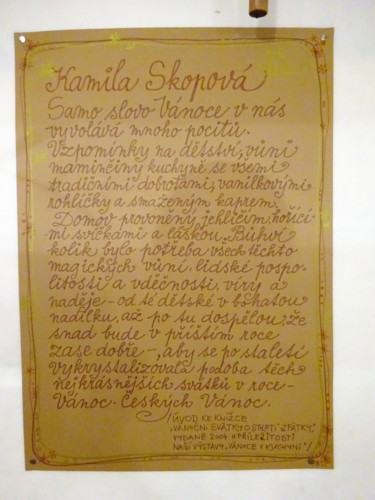 Kamila Skopová
Samo slovo Vánoce v nás
vyvolává mnoho pocitů.
Vzpomínky na dětství, vůni
maminčiny kuchyně se všemi
tradičními dobrotami, vanilkovými
rohlíčky a smaženým kaprem.
Domov provoněný jehličím, hořící-
mi svíčkami a láskou. Bůhví
kolik bylo potřeba všech těchto
magických vůní, lidské pospo-
litosti a vděčnosti, víry a
naděje - od té dětské v bohatou
nadílku, až po tu dospělou, že
snad bude v příštím roce
zase dobře -, aby se po staletí
vykrystalizovala podoba těch
nejkrásnějších svátků v roce -
Vánoc. Českých Vánoc.
/ÚVOD KE KNÍŽCE
"VÁNOČNÍ SVÁTKY O ZPÁTKY,"
VYDANÉ 2004 U PŘÍLEŽITOSTI
NAŠÍ VÝSTAVY "VÁNOCE V KUCHYNI"/